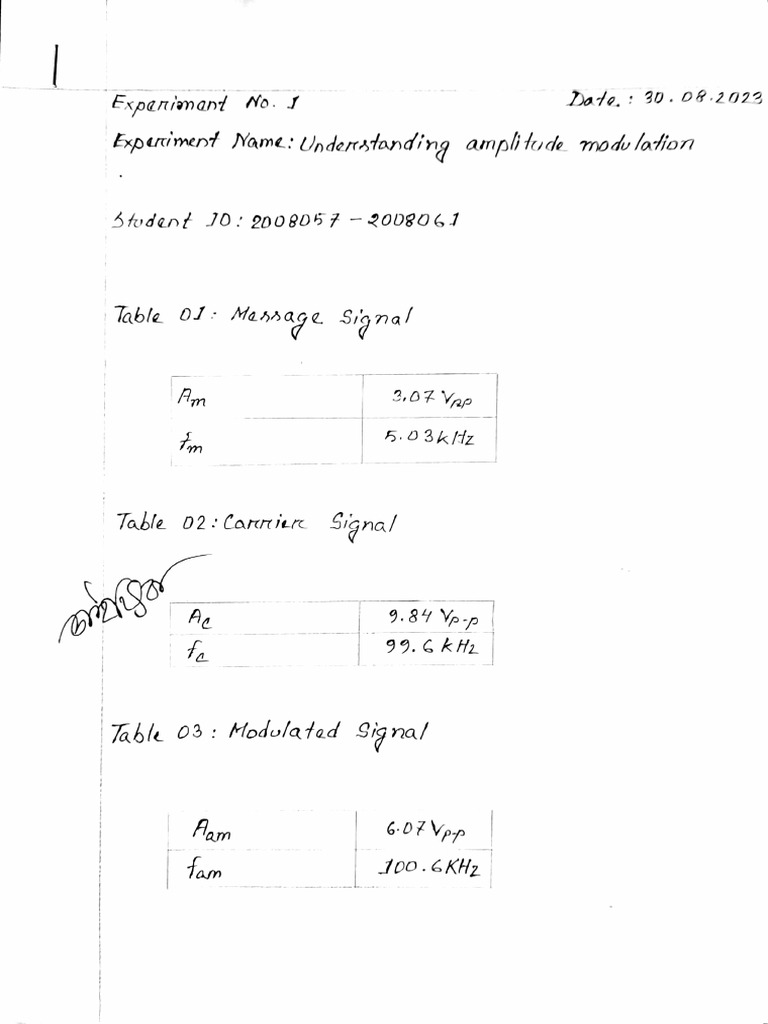 1
Experiment No. 1 Date: 30.08.2023
Experiment Name: Understanding amplitude modulation
Student ID: 2008057 - 2008061
Table 01: Message Signal
Am 3.07 Vpp
fm 5.03 kHz
Table 02: Carrier Signal
Ac 9.84 Vp-p
fc 99.6 kHz
Table 03: Modulated Signal
Aam 6.07 Vp-p
fam 100.6 KHz